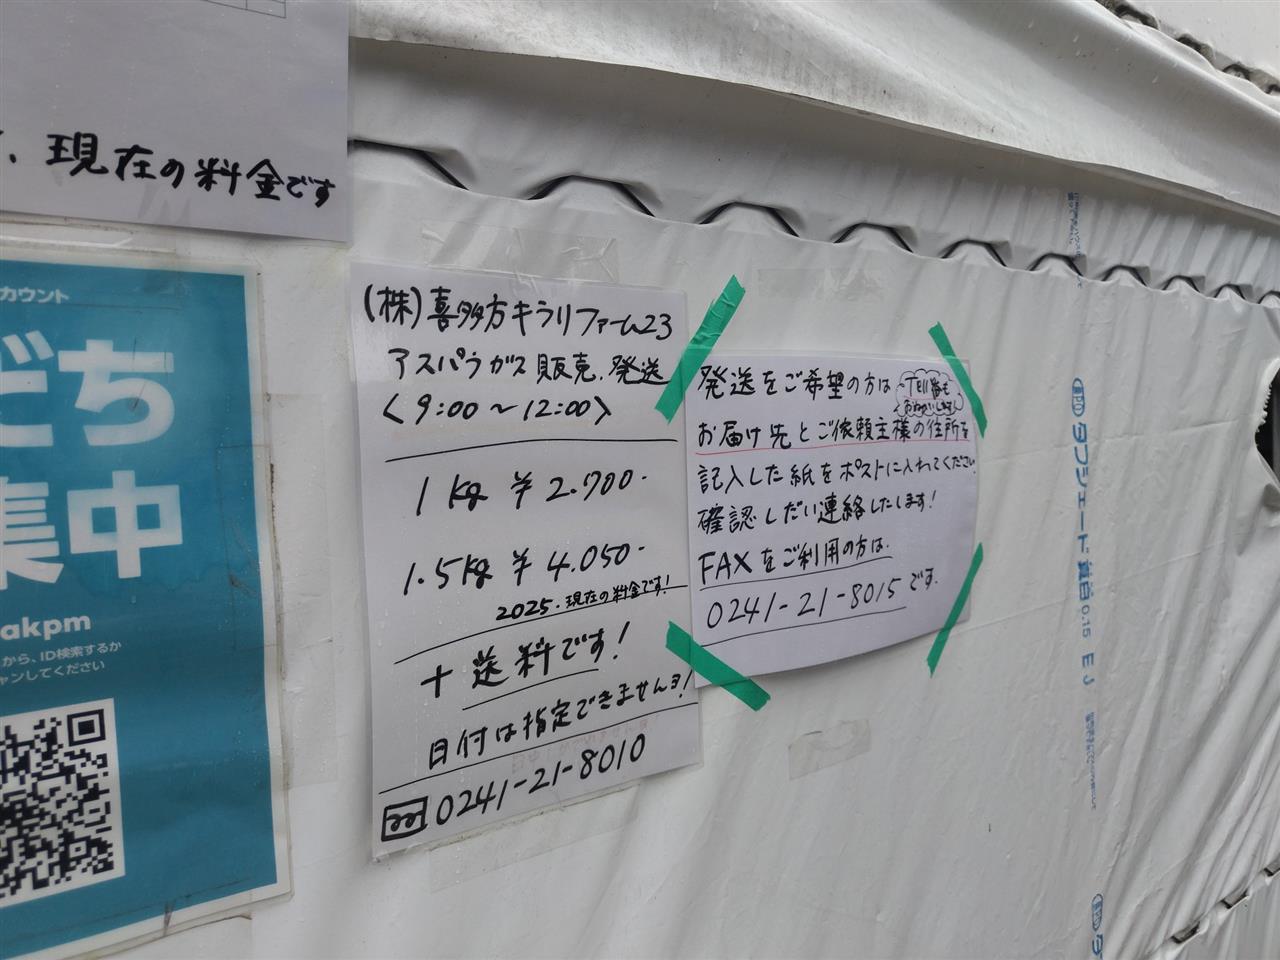 、現在の料金です
カウント
だち
集中
akpm
から、ID検索するか
ャンしてください
(株)喜多方キラリファーム23
アスパラガス販売、発送
<9:00～12:00>
1kg ¥2.700-
1.5kg ¥4.050-
2025.現在の料金です!
+送料です!
日付は指定できませんヨ!
0241-21-8010
発送をご希望の方は TEL番も
おねがいします
お届け先とご依頼主様の住所を
記入した紙をポストに入れてください
確認しだい連絡したします!
FAXをご利用の方は、
0241-21-8015です。
タフシェード 真白 0.15 E J